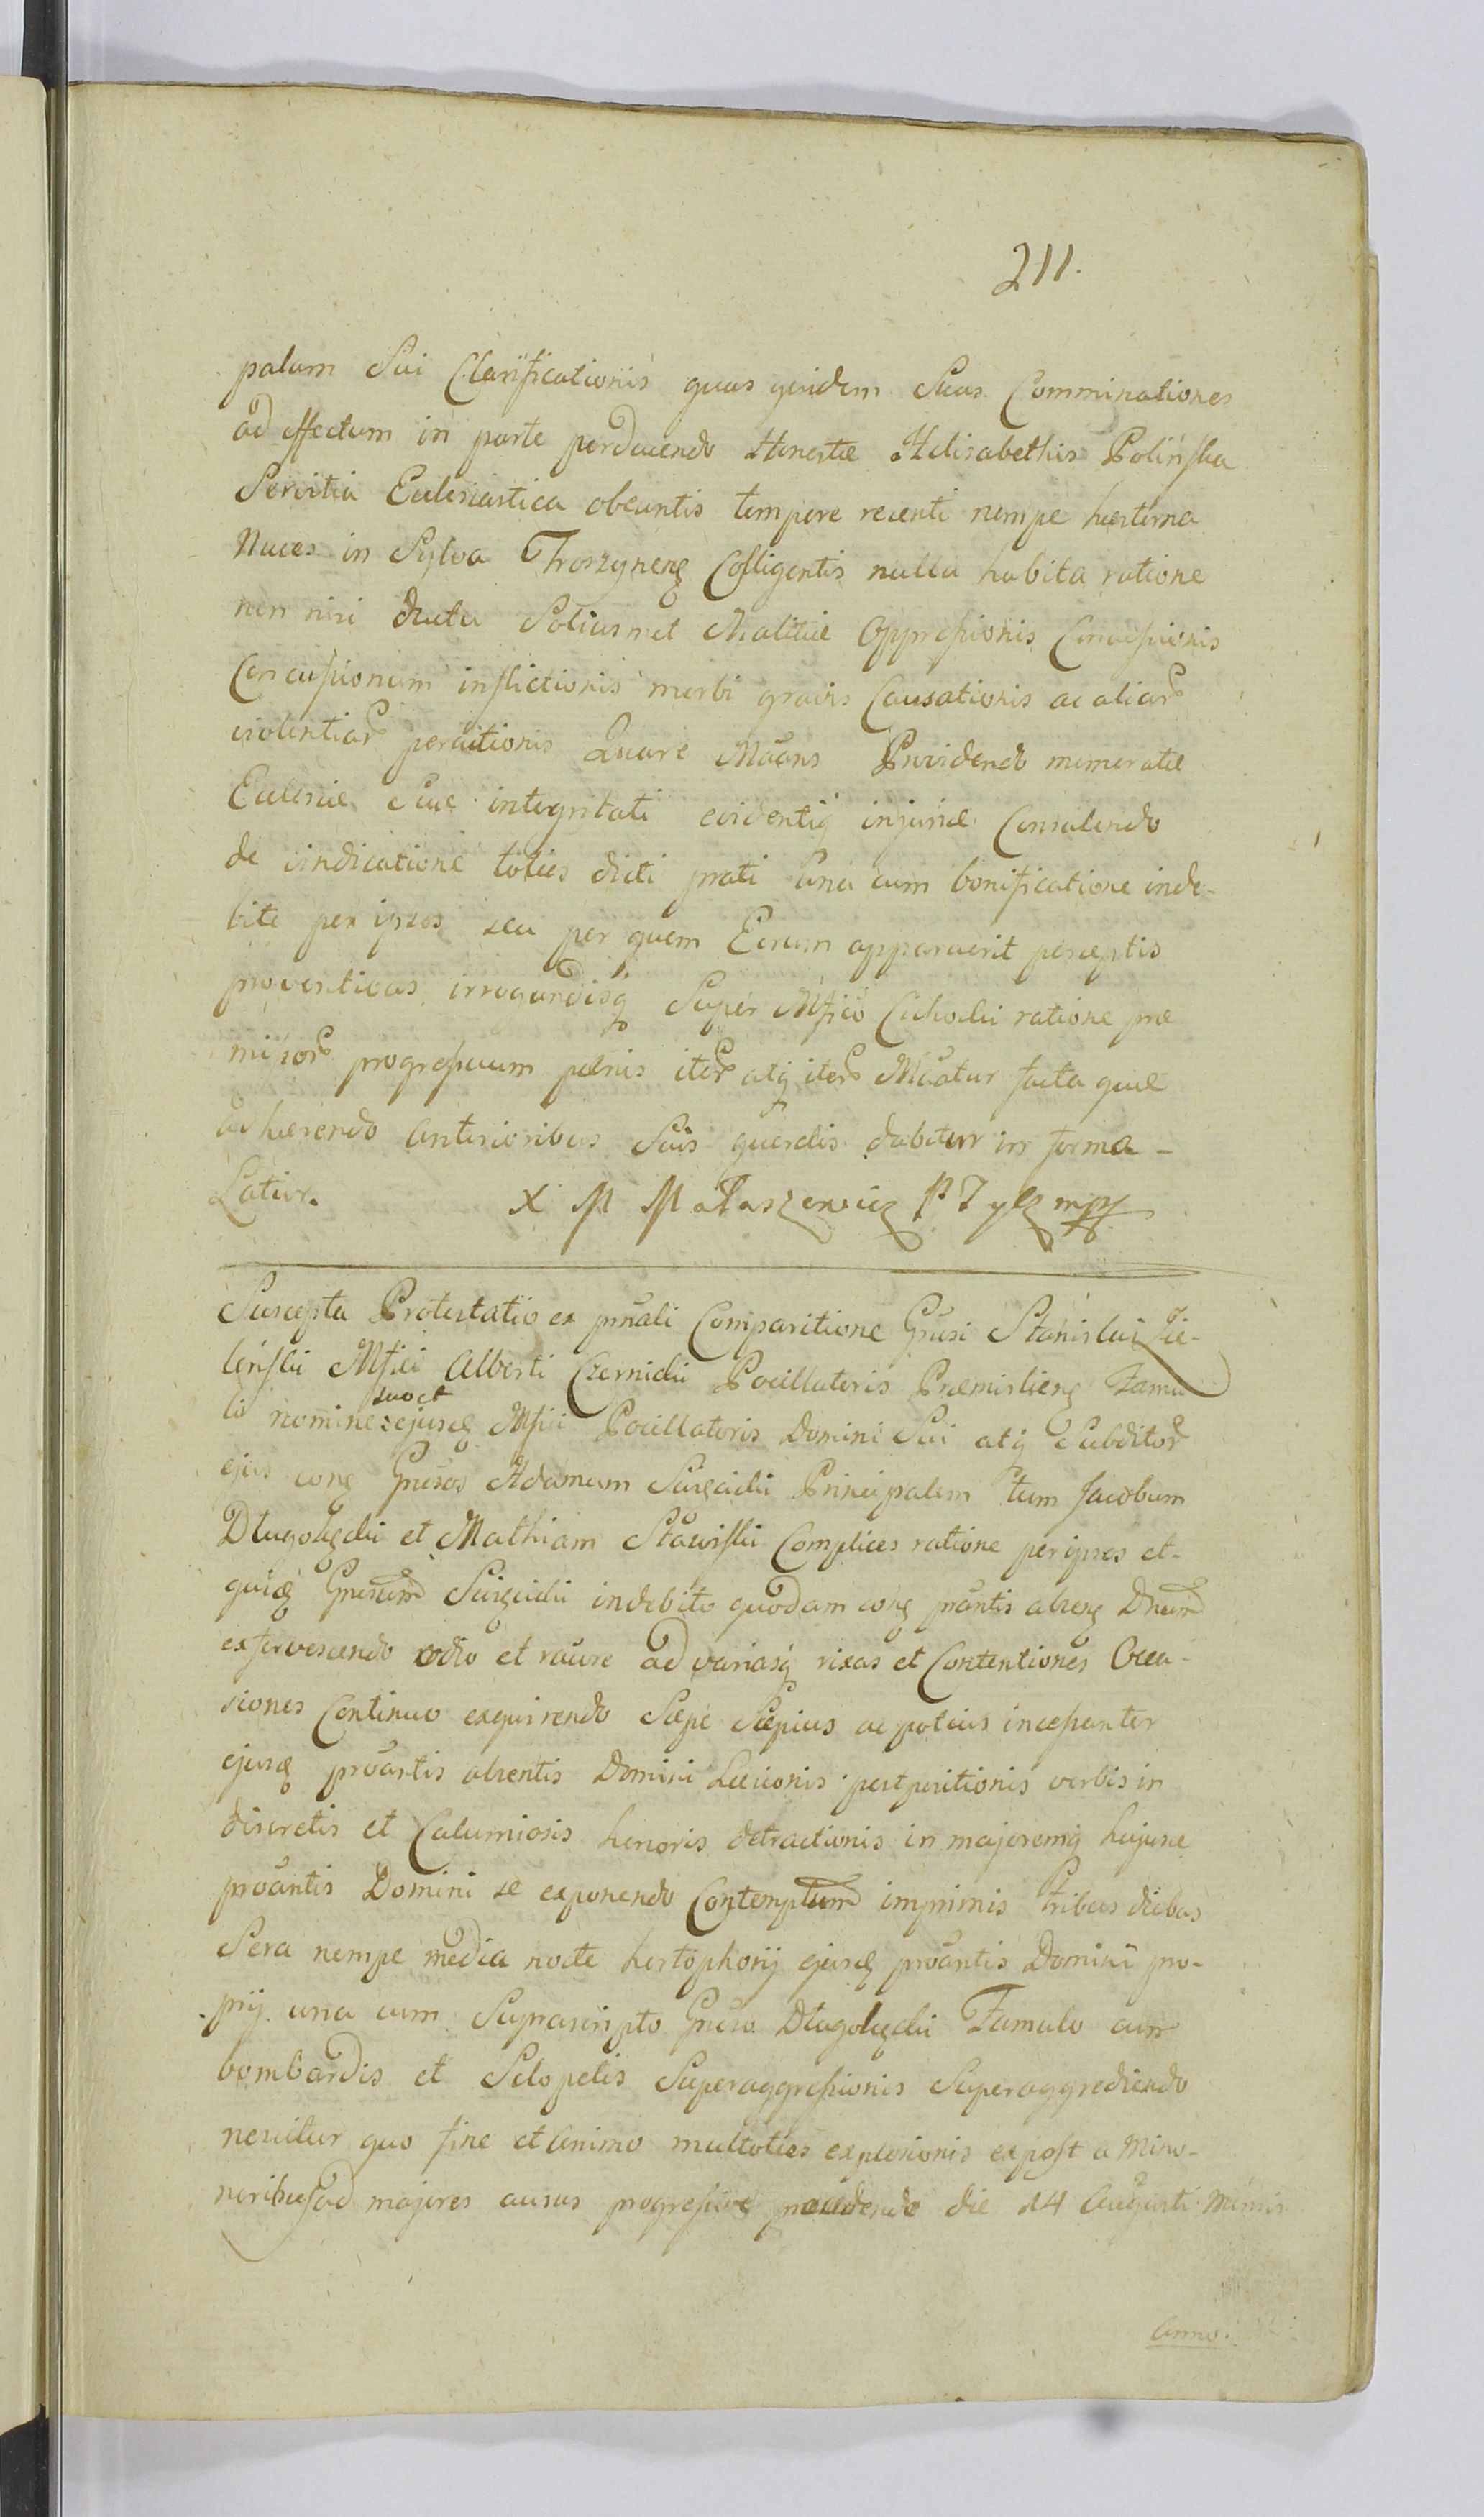 211.
palam Sui Clarificationis quas quidem Suas Comminationes
ad effectum in parte perducendo Honestæ Helisabethis Polińska
Servitia Ecclesiastica obeuntis tempore recenti nempe hesterna
Nuces in Sylva Troszynenẽ Colligentis nulla habita ratione
non nisi ducta Soliusmet Malitiæ Oppressionis Concussionis
Concussionum inflictionis morbi gravis Causationis ac aliar̃
violentiar̃ peractionis Quare Mãans Providendo memoratæ
Ecclesiæ Suæ integritati evidentiq̃ injuriæ Consulendo
de vindicatione toties dicti prati una cum bonificatione inde-
bite per ipsos seu per quem Eorum apparuerit perceptis
proventibus irrogandisq̃ Super Mfico Cichocki ratione præ
misor̃ progressuum pœnis iter̃ atq̃ iter̃ Mãatur facta quæ
adhærendo anterioribus Suis querelis dabitur in forma -
Latior.
X M Mataszewicz P T ylẽ mpp
Suscepta Protestatio ex pr̃nali Comparitione Gr̃nsi Stanislai Zie-
leńskii Mfici Alberti Czernicki Pocillatoris Præmislienẽ Famu
li nomine suo et ejusd̃ Mfici Pocillatoris Domini Sui atq̃ Subditor̃
ejus con̄ Gñsos Adamum Suscicki Principalem tum Jacobum
Długołęcki et Mathiam Stawiski Complices ratione per ipsos et-
quid̃ Gñsum Suscicki indebito quodam con̄ pr̃antis absen̄ Dñum
exfervescendo odio et rancore ad variasq̃ rixas et Contentiones Occa-
siones Continuo exquirendo Sæpe Sæpius ac potius incessanter
ejusd̃ pr̃oantis absentis Domini Læsionis postpositionis verbis in
discretis et Calumniosis honoris detractionis in majoremq̃ hujusce
pr̃oantis Domini se exponendo Contemptum imprimis tribus diebus
Sera nempe media nocte hortophorij ejusd̃ pr̃oantis Domini pro-
prij una cum Suprascripto Gñso Długołęcki Famulo cum
bombardis et Sclopetis Superaggressionis Superaggrediendo
nescitur quo fine et animo multoties explosionis ex post a mino-
noribus ad majores ausus progressive procedendo die 14 Augusti
Anno